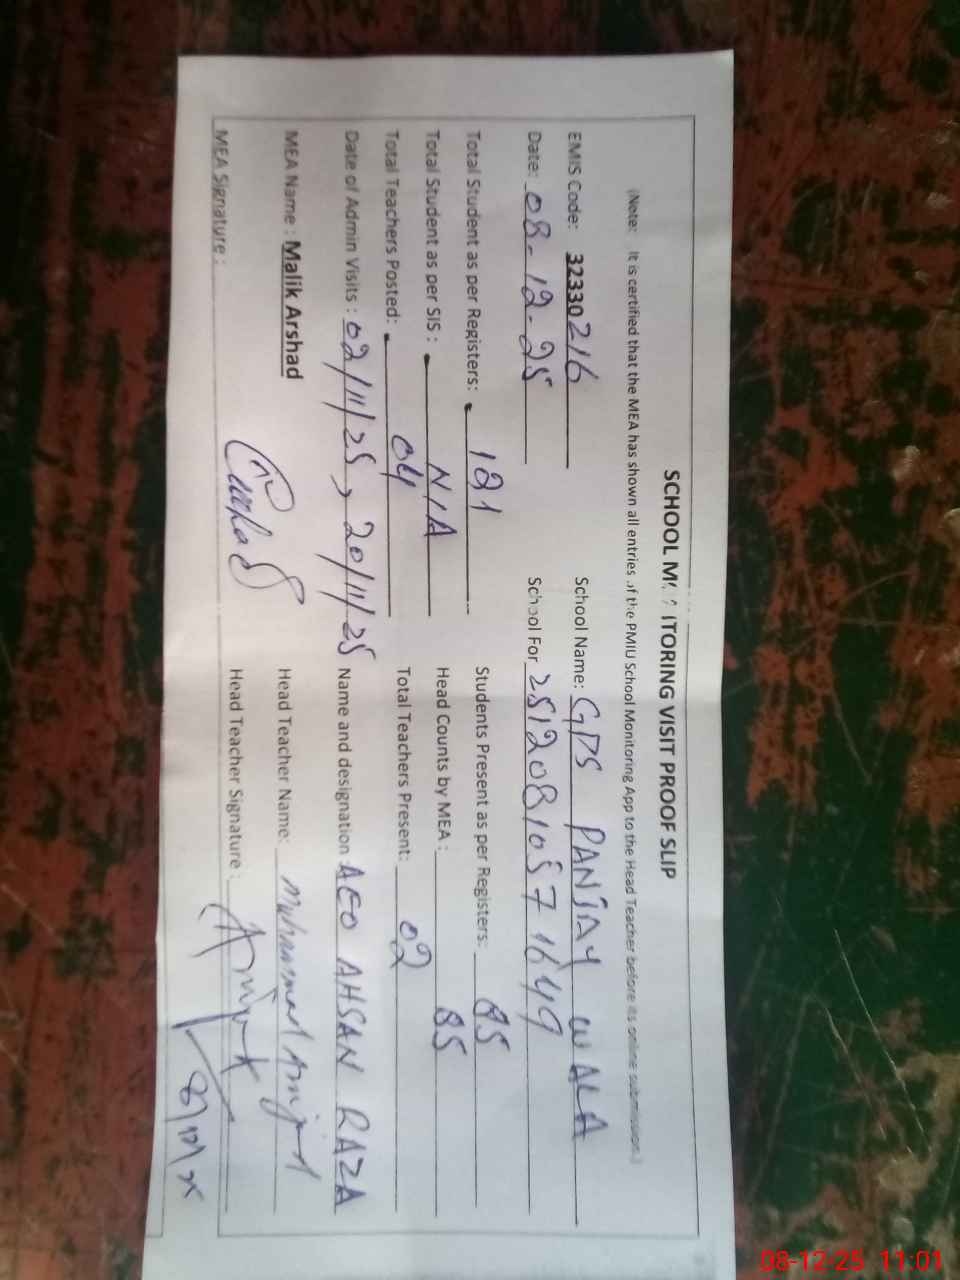 SCHOOL MONITORING VISIT PROOF SLIP
(Note: It is certified that the MEA has shown all entries of the PMIU School Monitoring App to the Head Teacher before its online submission.)
EMIS Code: 32330216 School Name: GPS PANJAY WALA
Date: 08-12-25 School For 2512081057 1649
Total Student as per Registers: 121 Students Present as per Registers: 85
Total Student as per SIS: N/A Head Counts by MEA: 85
Total Teachers Posted: 04 Total Teachers Present: 02
Date of Admin Visits: 02/11/25, 20/11/25 Name and designation AEO AHSAN RAZA
MEA Name: Malik Arshad Head Teacher Name: Muhammad Amjad
MEA Signature: Head Teacher Signature:
08-12-25 11:01